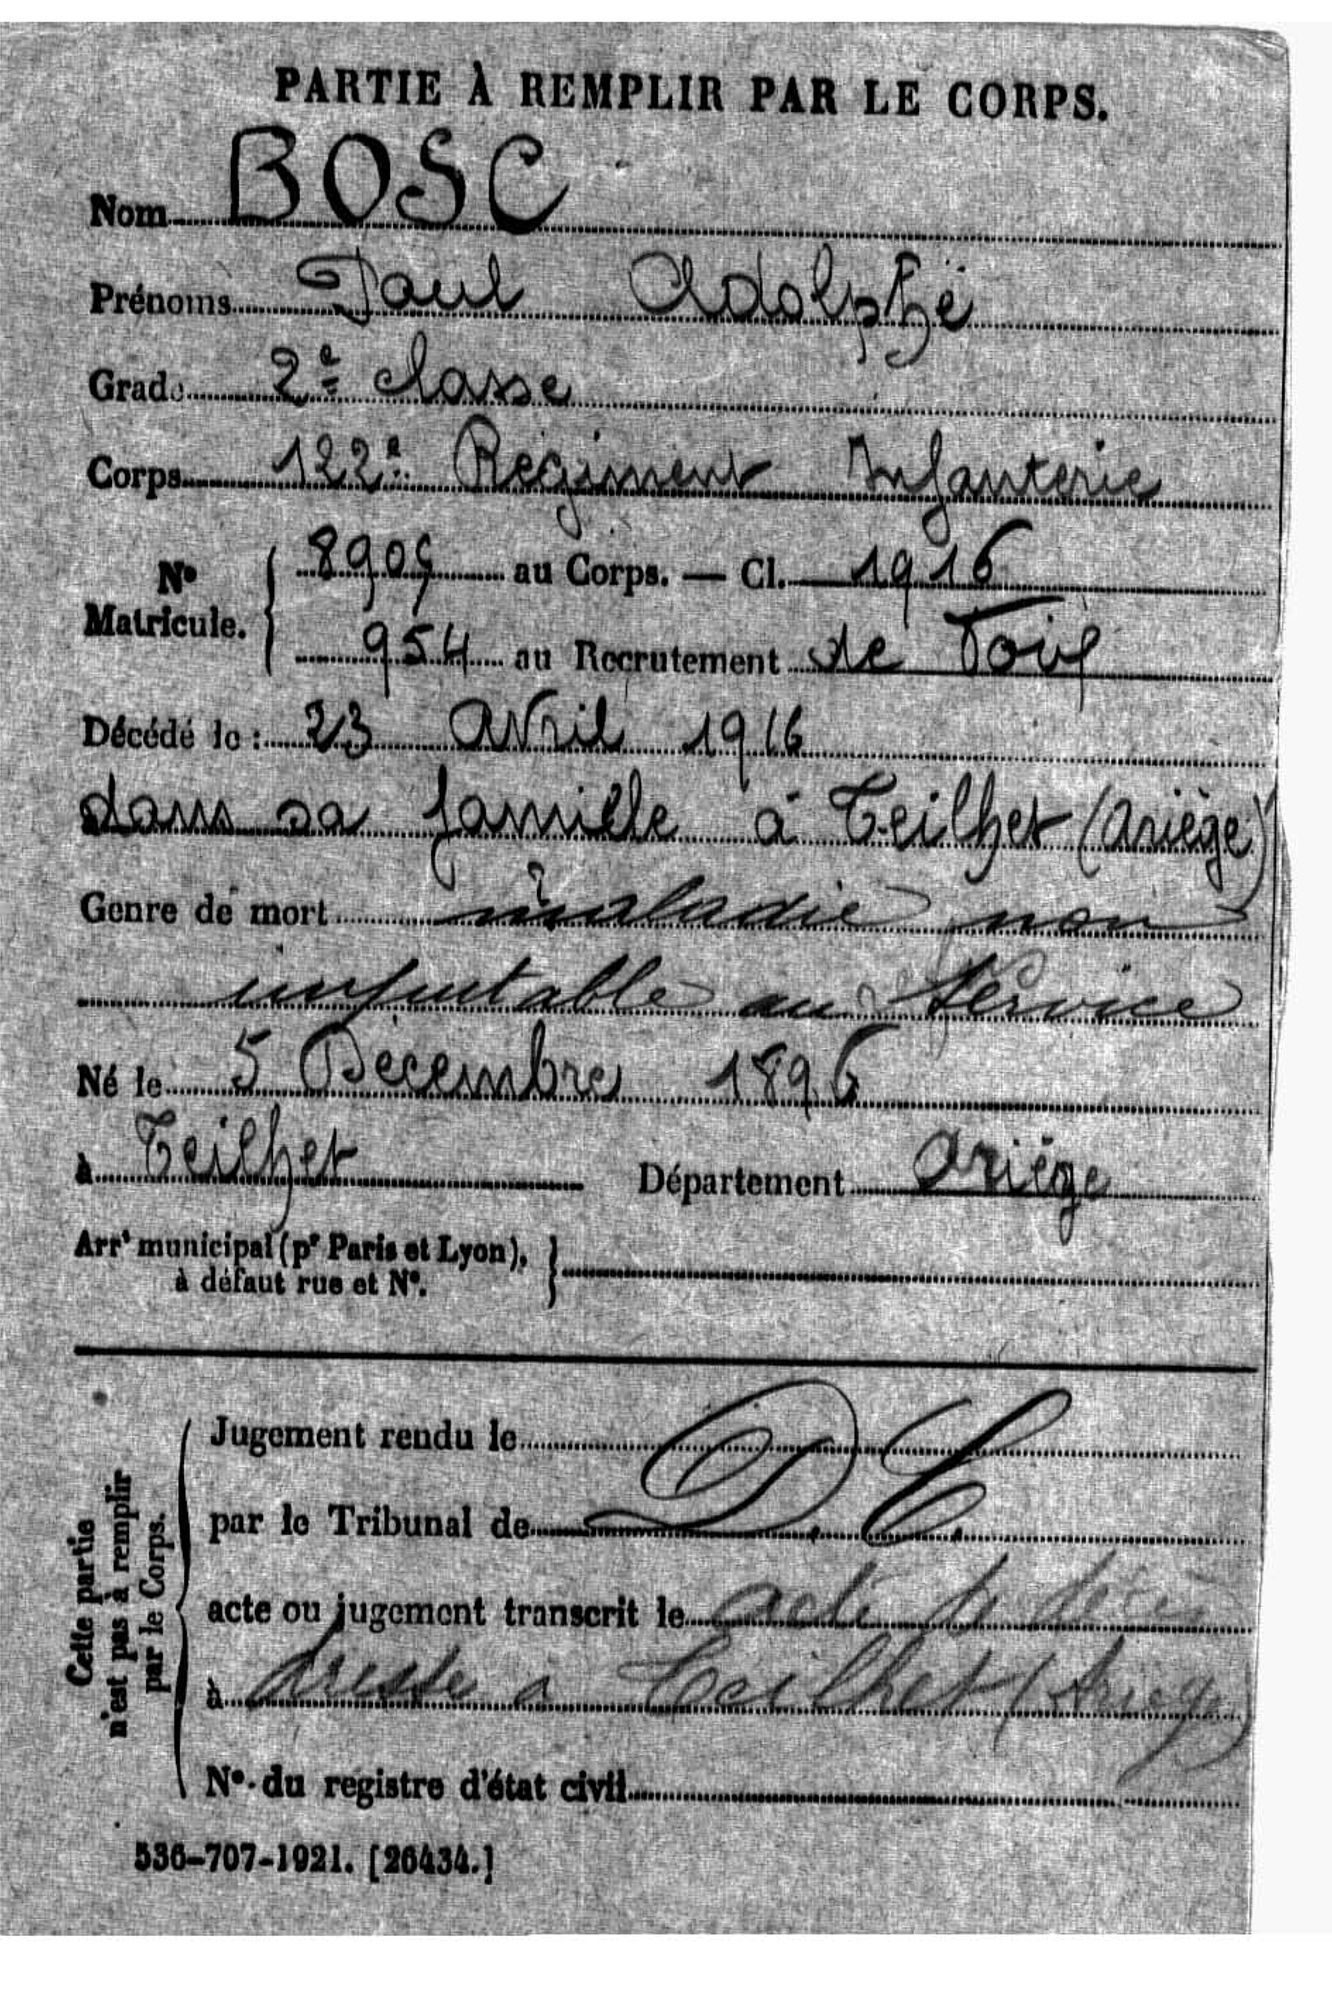 PARTIE À REMPLIR PAR LE CORPS.
Nom BOSC
Prénoms Paul Adolphe
Grade 2e classe
Corps 122e Régiment Infanterie
No Matricule. 8905 au Corps. — Cl. 1916
954 au Recrutement de Foix
Décédé le : 23 Avril 1916
dans sa famille à Teilhet (Ariège)
Genre de mort maladie non
imputable au Service
Né le 5 Décembre 1896
à Teilhet Département Ariège
Arrt municipal (pr Paris et Lyon), à défaut rue et No.
Cette partie n'est pas à remplir par le Corps.
Jugement rendu le
par le Tribunal de D. C.
acte ou jugement transcrit le acte de décès
à dressé à Teilhet (Ariège)
No du registre d'état civil
536-707-1921. [26434.]